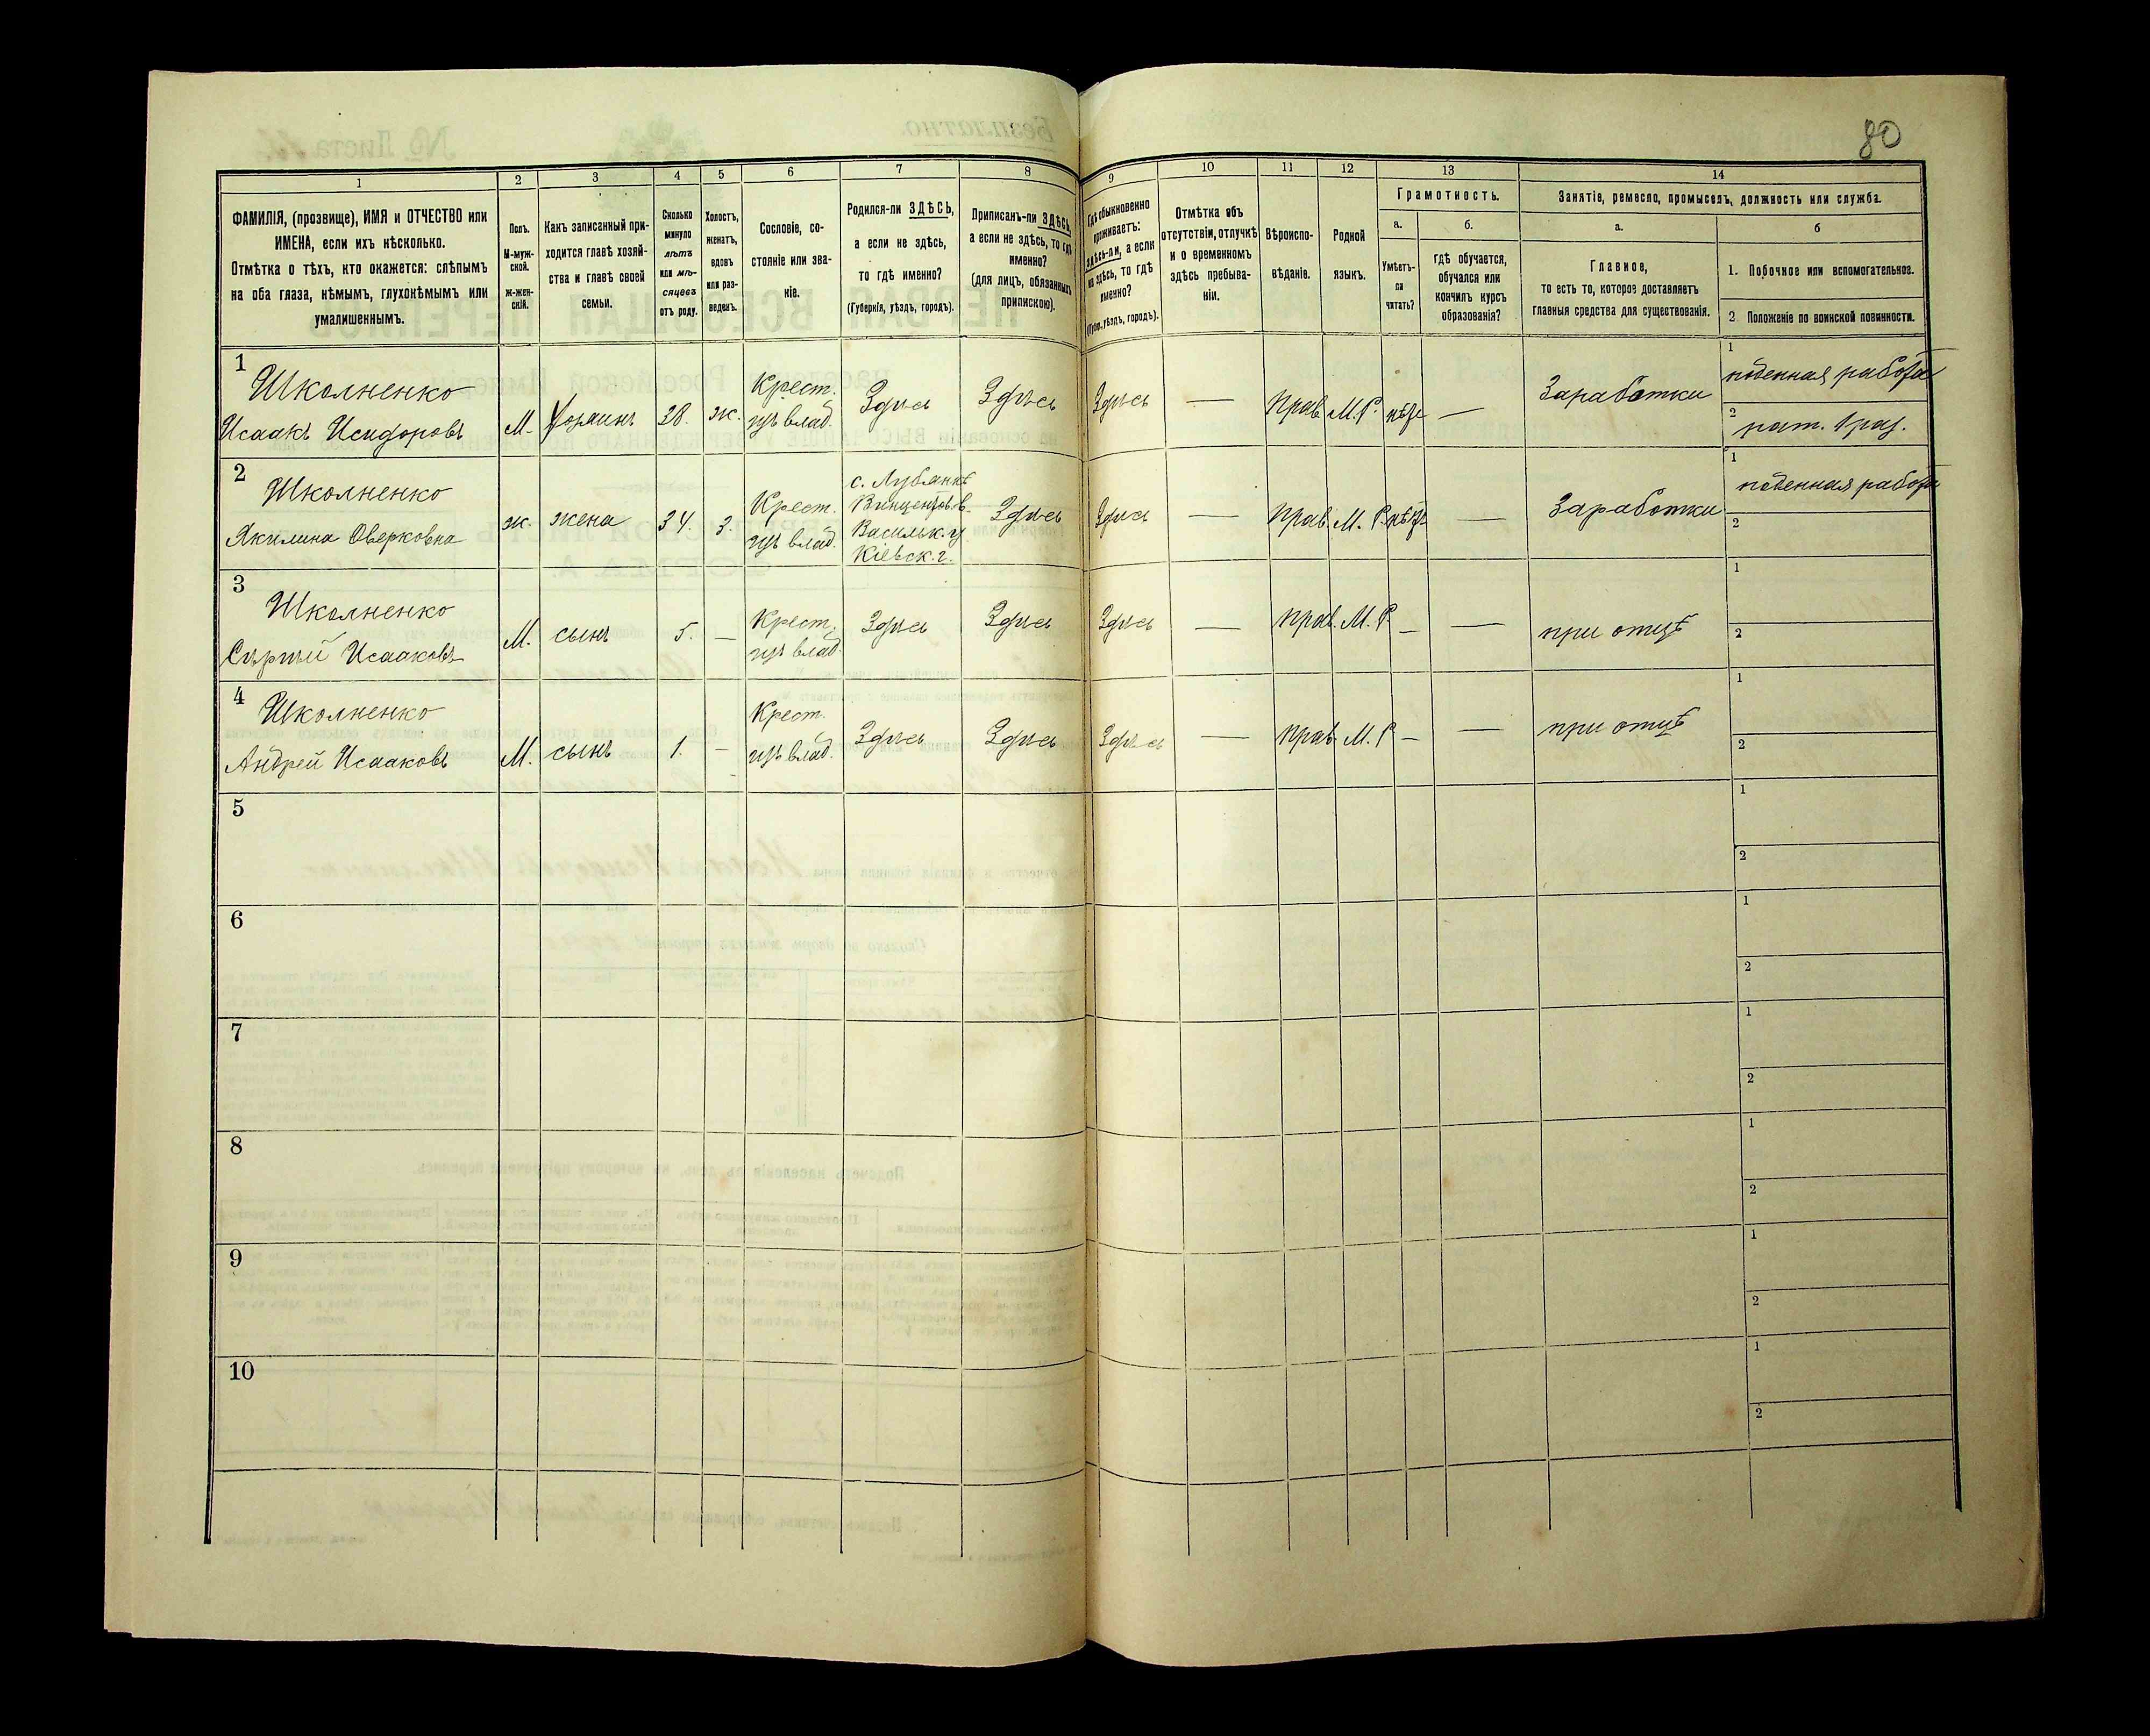 80
1 2 3 4 5 6 7 8 9 10 11 12 13 14
ФАМИЛІЯ, (прозвище), ИМЯ и ОТЧЕСТВО или
ИМЕНА, если ихъ нѣсколько.
Отмѣтка о тѣхъ, кто окажется: слѣпымъ
на оба глаза, нѣмымъ, глухонѣмымъ или
умалишеннымъ.
Полъ.
М-муж-
ской.
ж-жен-
скій.
Какъ записанный при-
ходится главѣ хозяй-
ства и главѣ своей
семьи.
Сколько
минуло
лѣтъ
или мѣ-
сяцевъ
отъ роду.
Холостъ,
женатъ,
вдовъ
или раз-
веденъ.
Сословіе, со-
стояніе или зва-
ніе.
Родился-ли ЗДѢСЬ,
а если не здѣсь,
то гдѣ именно?
(Губернія, уѣздъ, городъ).
Приписанъ-ли ЗДѢСЬ,
а если не здѣсь, то гдѣ
именно?
(для лицъ, обязанныхъ
припискою).
Гдѣ обыкновенно
проживаетъ:
здѣсь-ли, а если
не здѣсь, то гдѣ
именно?
(Губ., уѣздъ, городъ).
Отмѣтка объ
отсутствіи, отлучкѣ
и о временномъ
здѣсь пребыва-
ніи.
Вѣроиспо-
вѣданіе.
Родной
языкъ.
Грамотность.
а.
Умѣетъ-
ли
читать?
б.
гдѣ обучается,
обучался или
кончилъ курсъ
образованія?
Занятіе, ремесло, промыселъ, должность или служба.
а.
Главное,
то есть то, которое доставляетъ
главныя средства для существованія.
б
1. Побочное или вспомогательное.
2 Положеніе по воинской повинности.
1
Школненко
Исаакъ Исидоровъ
М.
Хозяинъ
38.
ж.
Крест.
изъ влад.
Здѣсь
Здѣсь
Здѣсь
—
прав.
М.Р.
нѣтъ
—
Заработки
1
поденная работа
2
рат. 1 раз.
2
Школненко
Якилина Оверковна
ж.
жена
34.
З.
Крест.
изъ влад.
с. Лубянкѣ
Васильк. у
Кіевск. г.
Здѣсь
Здѣсь
—
прав.
М. Р.
нѣтъ
—
Заработки
1
поденная работа
2
3
Школненко
Сергѣй Исааковъ
М.
сынъ
5.
—
Крест.
изъ влад.
Здѣсь
Здѣсь
Здѣсь
—
прав.
М. Р.
—
—
при отцѣ
1
2
4
Школненко
Андрей Исааковъ
М.
сынъ
1.
—
Крест.
изъ влад.
Здѣсь
Здѣсь
Здѣсь
—
прав.
М. Р.
—
—
при отцѣ
1
2
5
1
2
6
1
2
7
1
2
8
1
2
9
1
2
10
1
2